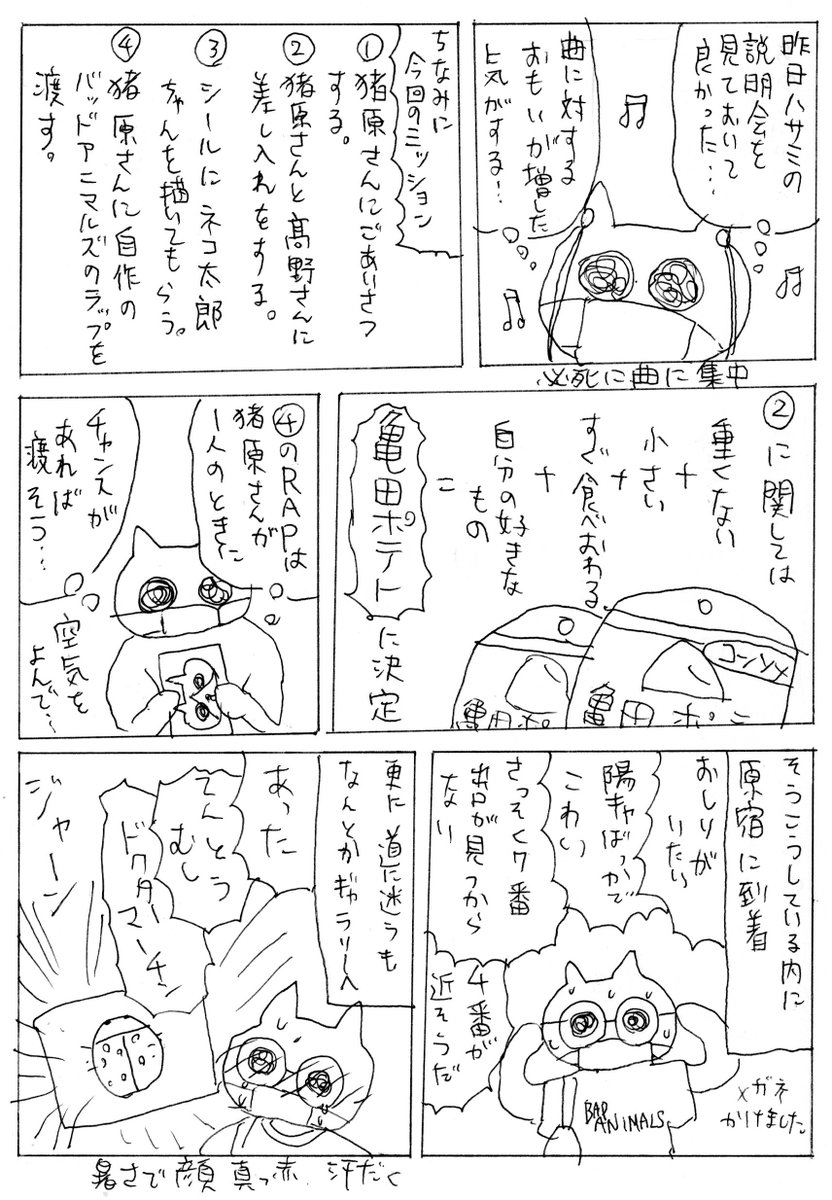 昨日ハサミの
説明会を
見ておいて
良かった…
曲に対する
おもいが増した
気がする…
必死に曲に集中
ちなみに
今回のミッション
①猪原さんにごあいさつ
する。
②猪原さんと髙野さんに
差し入れをする。
③シールにネコ太郎
ちゃんを描いてもらう。
④猪原さんに自作の
バッドアニマルズのラップを
渡す。
②に関しては
重くない
+
小さい
+
すぐ食べおわる
+
自分の好きな
もの
=
亀田ポテト
に決定
コンソメ
亀田ポテ
亀田ポ
④のRAPは
猪原さんが
1人のときに
チャンスが
あれば
渡そう…
空気を
よんで…
そうこうしている内に
原宿に到着
おしりが
いたい
陽キャばっかで
こわい
さっそく7番
出口が見つから
ない
4番が
近そうだ
BAD
ANIMALS
メガネ
かけました
更に道に迷うも
なんとかギャラリーへ
あった
てんとう
むし
ドクター
マーチン
ジャーン
暑さで顔真っ赤 汗だく